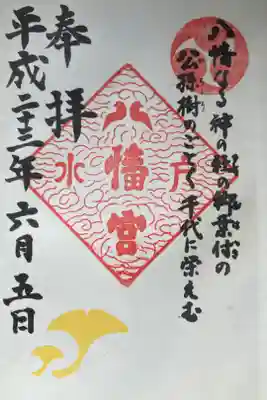 八幡なる神の鎮の御葉付の
公孫樹のごとく千代に栄えむ
水戸
八幡宮
奉拝
平成二十三年六月五日